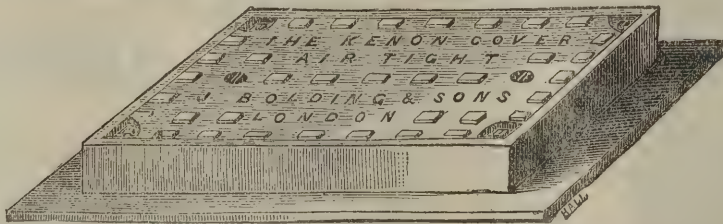 THE KENON COVER
AIR TIGHT
J. BOLDING & SONS
LONDON
HALL